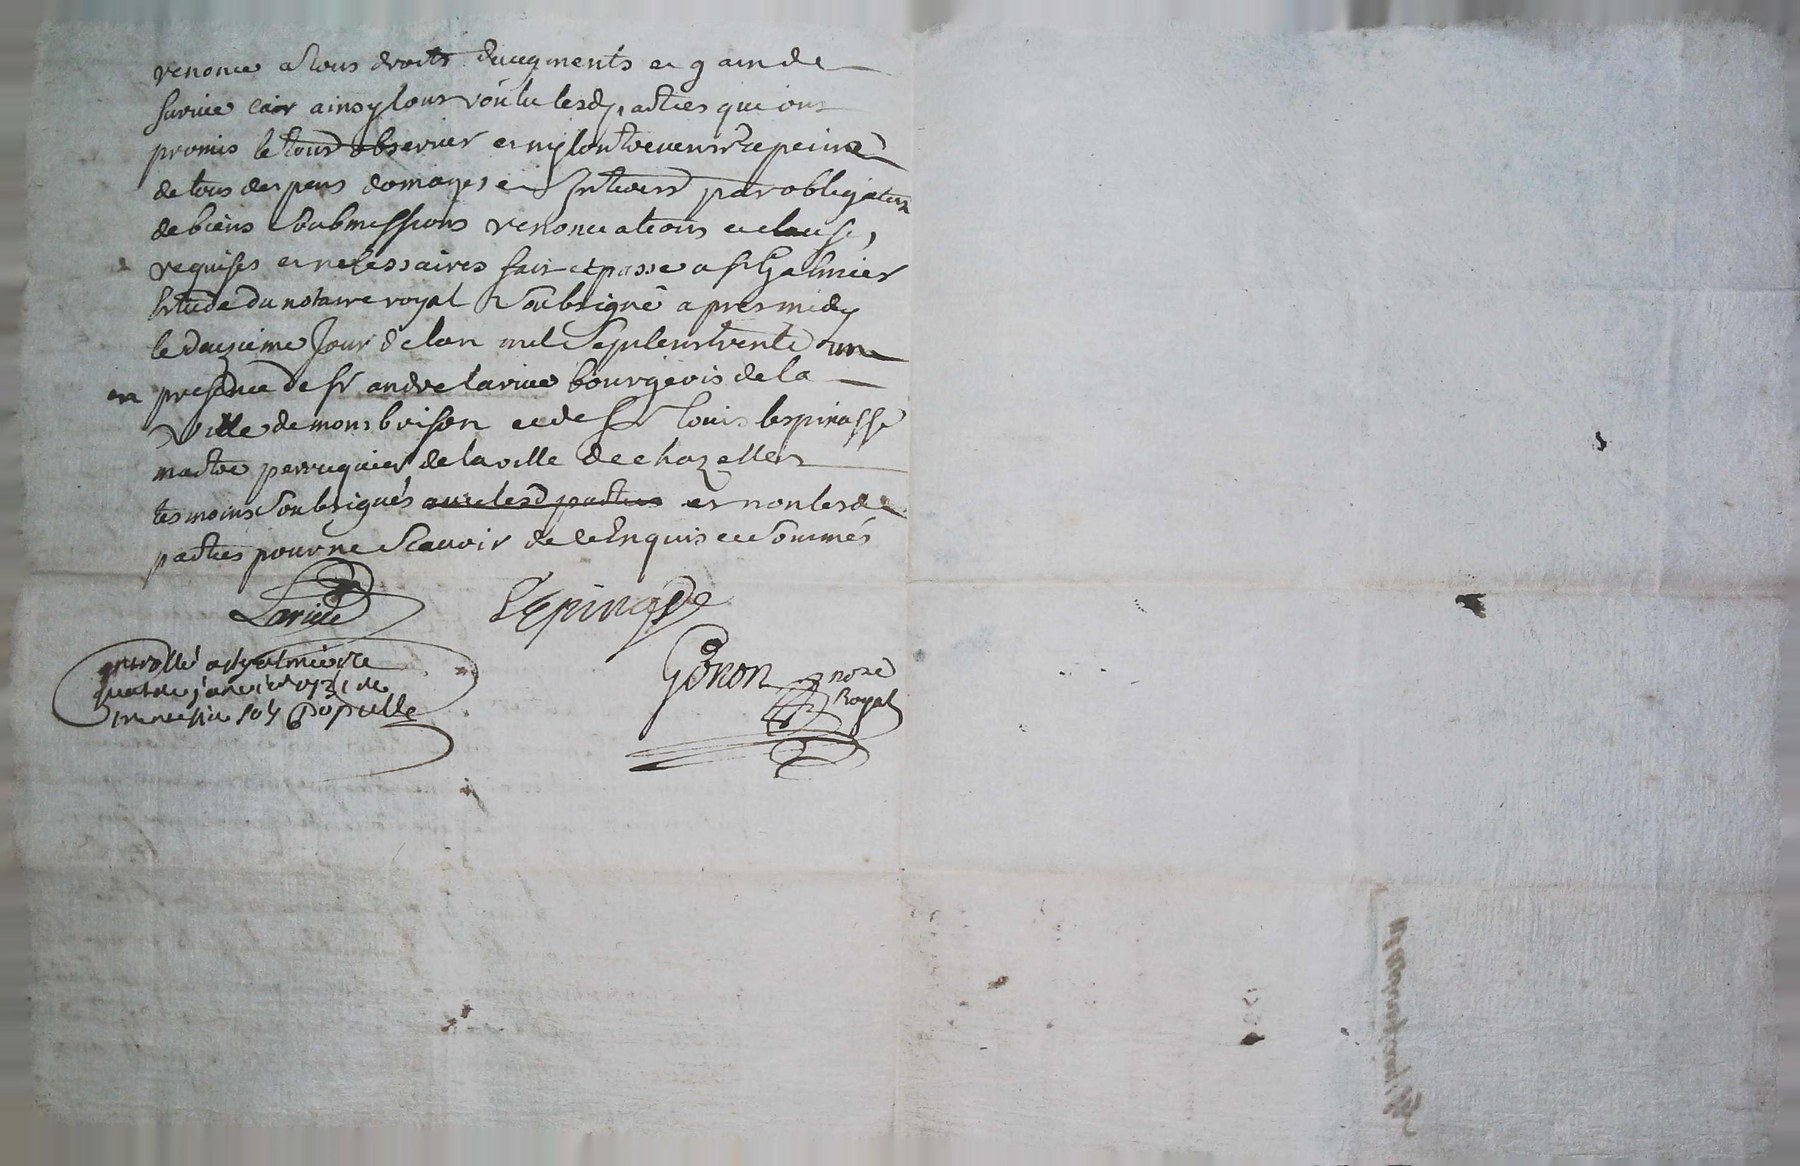 renonce a tous droits daugments et gain de
survie car ainsy lont voulu lesd parties qui ont
promis le tout observer et ny contrevenir a peine
de tous despens domages et Interets par obligation
de biens Soubmissions renonciations et clauses
requises et necessaires fait et passe a St Galmier
Estude du notaire royal Soubsigné apres midy
le deuzieme Jour de lan mil Sept cens trente un
en presence de sr andre larive bourgeois de la
ville de monbrison et de sr louis lespinasse
maitre perruquier de la ville de chazelles
tesmoins Soubsignés avec lesd parties et non lesd
parties pour ne Scavoir de ce Enquis et Sommés
Larive
LEpinasse
controllé a St galmier le
quatre janvier 1731
Populle
Gonon nore
Royal